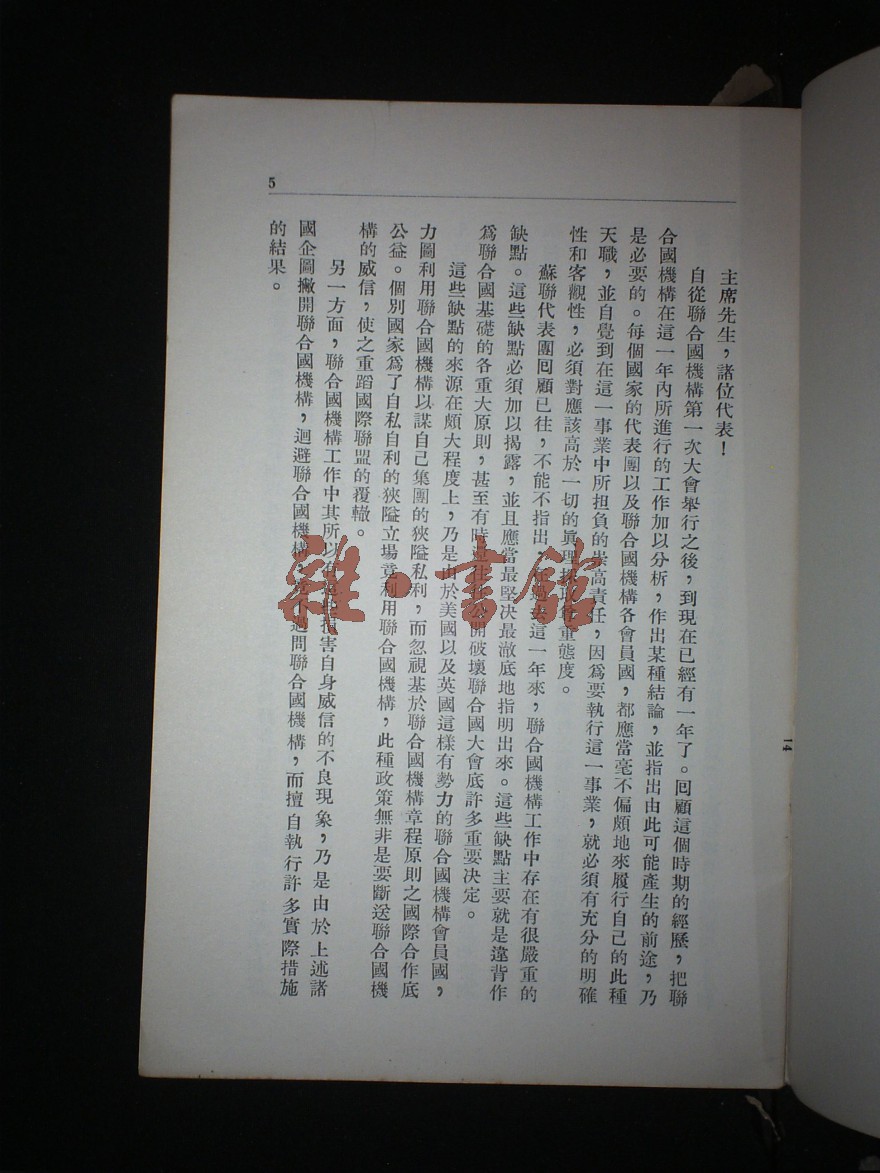 主席先生，諸位代表！
自從聯合國機構第一次大會舉行之後，到現在已經有一年了。回顧這個時期的經歷，把聯
合國機構在這一年內所進行的工作加以分析，作出某種結論，並指出由此可能產生的前途，乃
是必要的。每個國家的代表團以及聯合國機構各會員國，都應當毫不偏頗地來履行自己的此種
天職，並自覺到在這一事業中所担負的崇高責任，因爲要執行這一事業，就必須有充分的明確
性和客觀性，必須對應該高於一切的眞理採取尊重態度。
蘇聯代表團回顧已往，不能不指出，在過去這一年來，聯合國機構工作中存在有很嚴重的
缺點。這些缺點必須加以揭露，並且應當最堅决最澈底地指明出來。這些缺點主要就是違背作
爲聯合國基礎的各重大原則，甚至有時還公開破壞聯合國大會底許多重要决定。
這些缺點的來源在頗大程度上，乃是由於美國以及英國這樣有勢力的聯合國機構會員國，
力圖利用聯合國機構以謀自己集團的狹隘私利，而忽視基於聯合國機構章程原則之國際合作底
公益。個別國家爲了自私自利的狹隘立場竟利用聯合國機構，此種政策無非是要斷送聯合國機
構的威信，使之重蹈國際聯盟的覆轍。
另一方面，聯合國機構工作中其所以有損害自身威信的不良現象，乃是由於上述諸
國企圖撇開聯合國機構，迴避聯合國機構，不過問聯合國機構，而擅自執行許多實際措施
的結果。
5
14
雜·書館